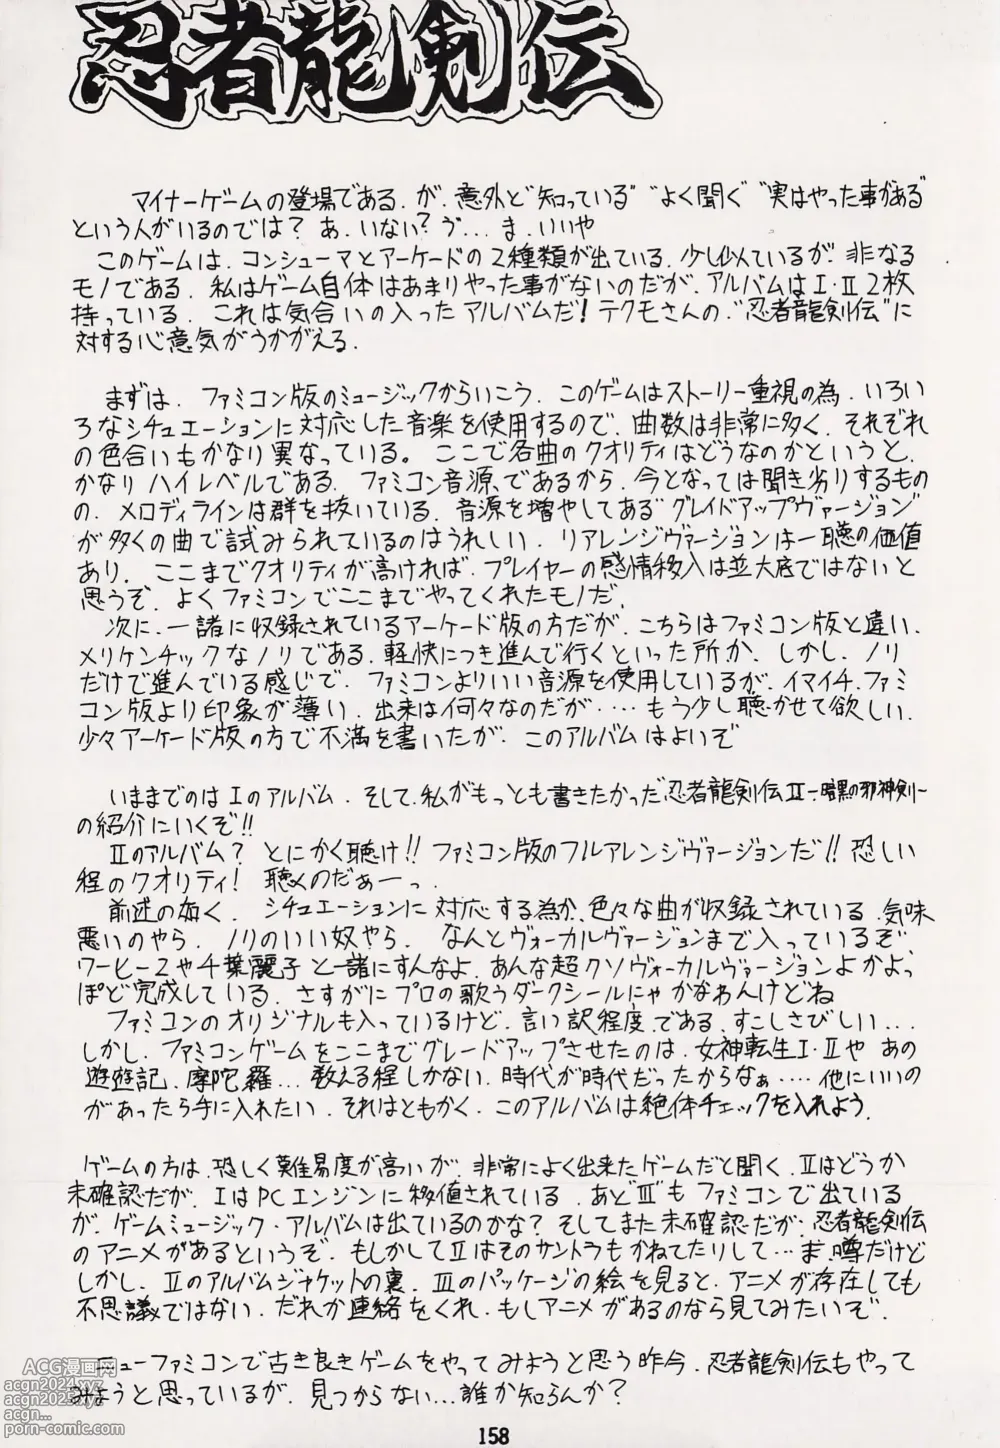 忍者龍剣伝
マイナーゲームの登場である。が、意外と"知っている""よく聞く""実はやった事がある"
という人がいるのでは?あ、いない?ゔ…ま、いいや
このゲームは、コンシューマとアーケードの2種類が出ている。少し似ているが、非なる
モノである。私はゲーム自体はあまりやった事がないのだが、アルバムはI・II2枚
持っている。これは気合いの入ったアルバムだ!テクモさんの"忍者龍剣伝"に
対する心意気がうかがえる。
まずは、ファミコン版のミュージックからいこう。このゲームはストーリー重視の為、いろい
ろなシチュエーションに対応した音楽を使用するので、曲数は非常に多く、それぞれ
の色合いもかなり異なっている。ここで各曲のクオリティはどうなのかというと、
かなりハイレベルである。ファミコン音源、であるから、今となっては聞き劣りするもの
の、メロディラインは群を抜いている。音源を増やしてある"グレイドアップヴァージョン"
が多くの曲で試みられているのはうれしい。リアレンジヴァージョンは一聴の価値
あり。ここまでクオリティが高ければ、プレイヤーの感情移入は並大底ではないと
思うぞ。よくファミコンでここまでやってくれたモノだ。
次に、一諸に収録されているアーケード版の方だが、こちらはファミコン版と違い、
メリケンチックなノリである。軽快につき進んで行くといった所か、しかし、ノリ
だけで進んでいる感じで、ファミコンよりいい音源を使用しているが、イマイチ、ファミ
コン版より印象が薄い。出来は何々なのだが・・・・もう少し聴かせて欲しい。
少々アーケード版の方で不満を書いたが、このアルバムはよいぞ
いままでのはIのアルバム、そして、私がもっとも書きたかった忍者龍剣伝II-暗黒の邪神剣-
の紹介にいくぞ!!
IIのアルバム?とにかく聴け!!ファミコン版のフルアレンジヴァージョンだ!!恐しい
程のクオリティ!聴くのだぁーっ。
前述の如く、シチュエーションに対応する為か、色々な曲が収録されている。気味
悪いのやら、ノリのいい奴やら、なんとヴォーカルヴァージョンまで入っているぞ。
ワーヒース2や千葉麗子と一諸にすんなよ、あんな超クソヴォーカルヴァージョンよかよっ
ぽど完成している。さすがにプロの歌うダークシールにゃかなわんけどね
ファミコンのオリジナルも入っているけど、言い訳程度、である、すこしさびしい...
しかし、ファミコンゲームをここまでグレードアップさせたのは、女神転生I・IIやあの
遊遊記、摩陀羅...数える程しかない。時代が時代だったからなぁ・・・・他にいいの
があったら手に入れたい。それはともかく、このアルバムは絶体チェックを入れよう。
ゲームの方は、恐しく難易度が高いが、非常によく出来たゲームだと聞く、IIはどうか
未確認だが、IはPCエンジンに移値されている。あど"III"もファミコンで出ている
が、ゲームミュージック・アルバムは出ているのかな?そしてまた未確認だが、忍者龍剣伝
のアニメがあるというぞ。もしかしてIIはそのサントラもかねてたりして…ま、噂だけど
しかし、IIのアルバムジャケットの裏、IIIのパッケージの絵を見ると、アニメが存在しても
不思議ではない、だれか連絡をくれ、もしアニメがあるのなら見てみたいぞ。
ニューファミコンで古き良きゲームをやってみようと思う昨今、忍者龍剣伝もやって
みようと思っているが、見つからない…誰か知らんか?
158
ACG漫画网
acgn2024.xyz
acgn2025.xyz
acgn...
porn-comic.com